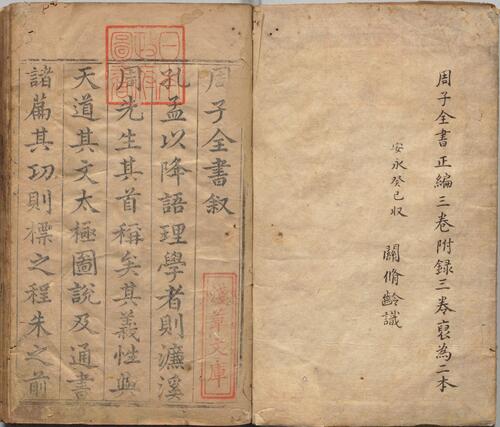 周子全書正編三卷附録三卷裒為二本
安永癸巳収
關脩齡識
日本政府圖書
周子全書叙
孔孟以降語理學者則濂溪
周先生其首稱矣其義性與
天道其文太極圖說及通書
諸篇其功則標之程朱之前
淺草文庫